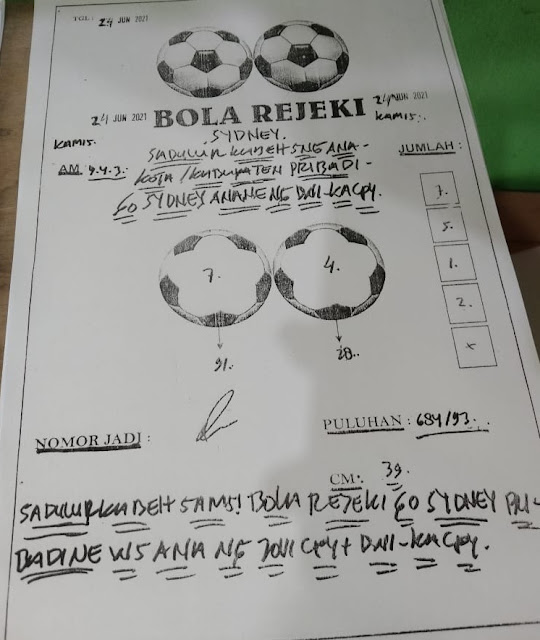 TGL : 24 JUN 2021
24 JUN 2021 BOLA REJEKI 24 JUN 2021
KAMIS. KAMIS.
SYDNEY.
SADULUR KABEH SNG ANA -
JUMLAH :
AM 9.4.3. KOTA / KABUPATEN PRIBADI -
60 SYDNEY ANANE NG DNI - KACPY.
7.
5.
1.
2.
7. 4.
91. 28..
NOMOR JADI : PULUHAN : 684/93.
CM. 39.
SADULUR KABEH SAMSI BOLA REJEKI 60 SYDNEY PRI-
BADINE WS ANA NG CPY + DNI - KACPY.